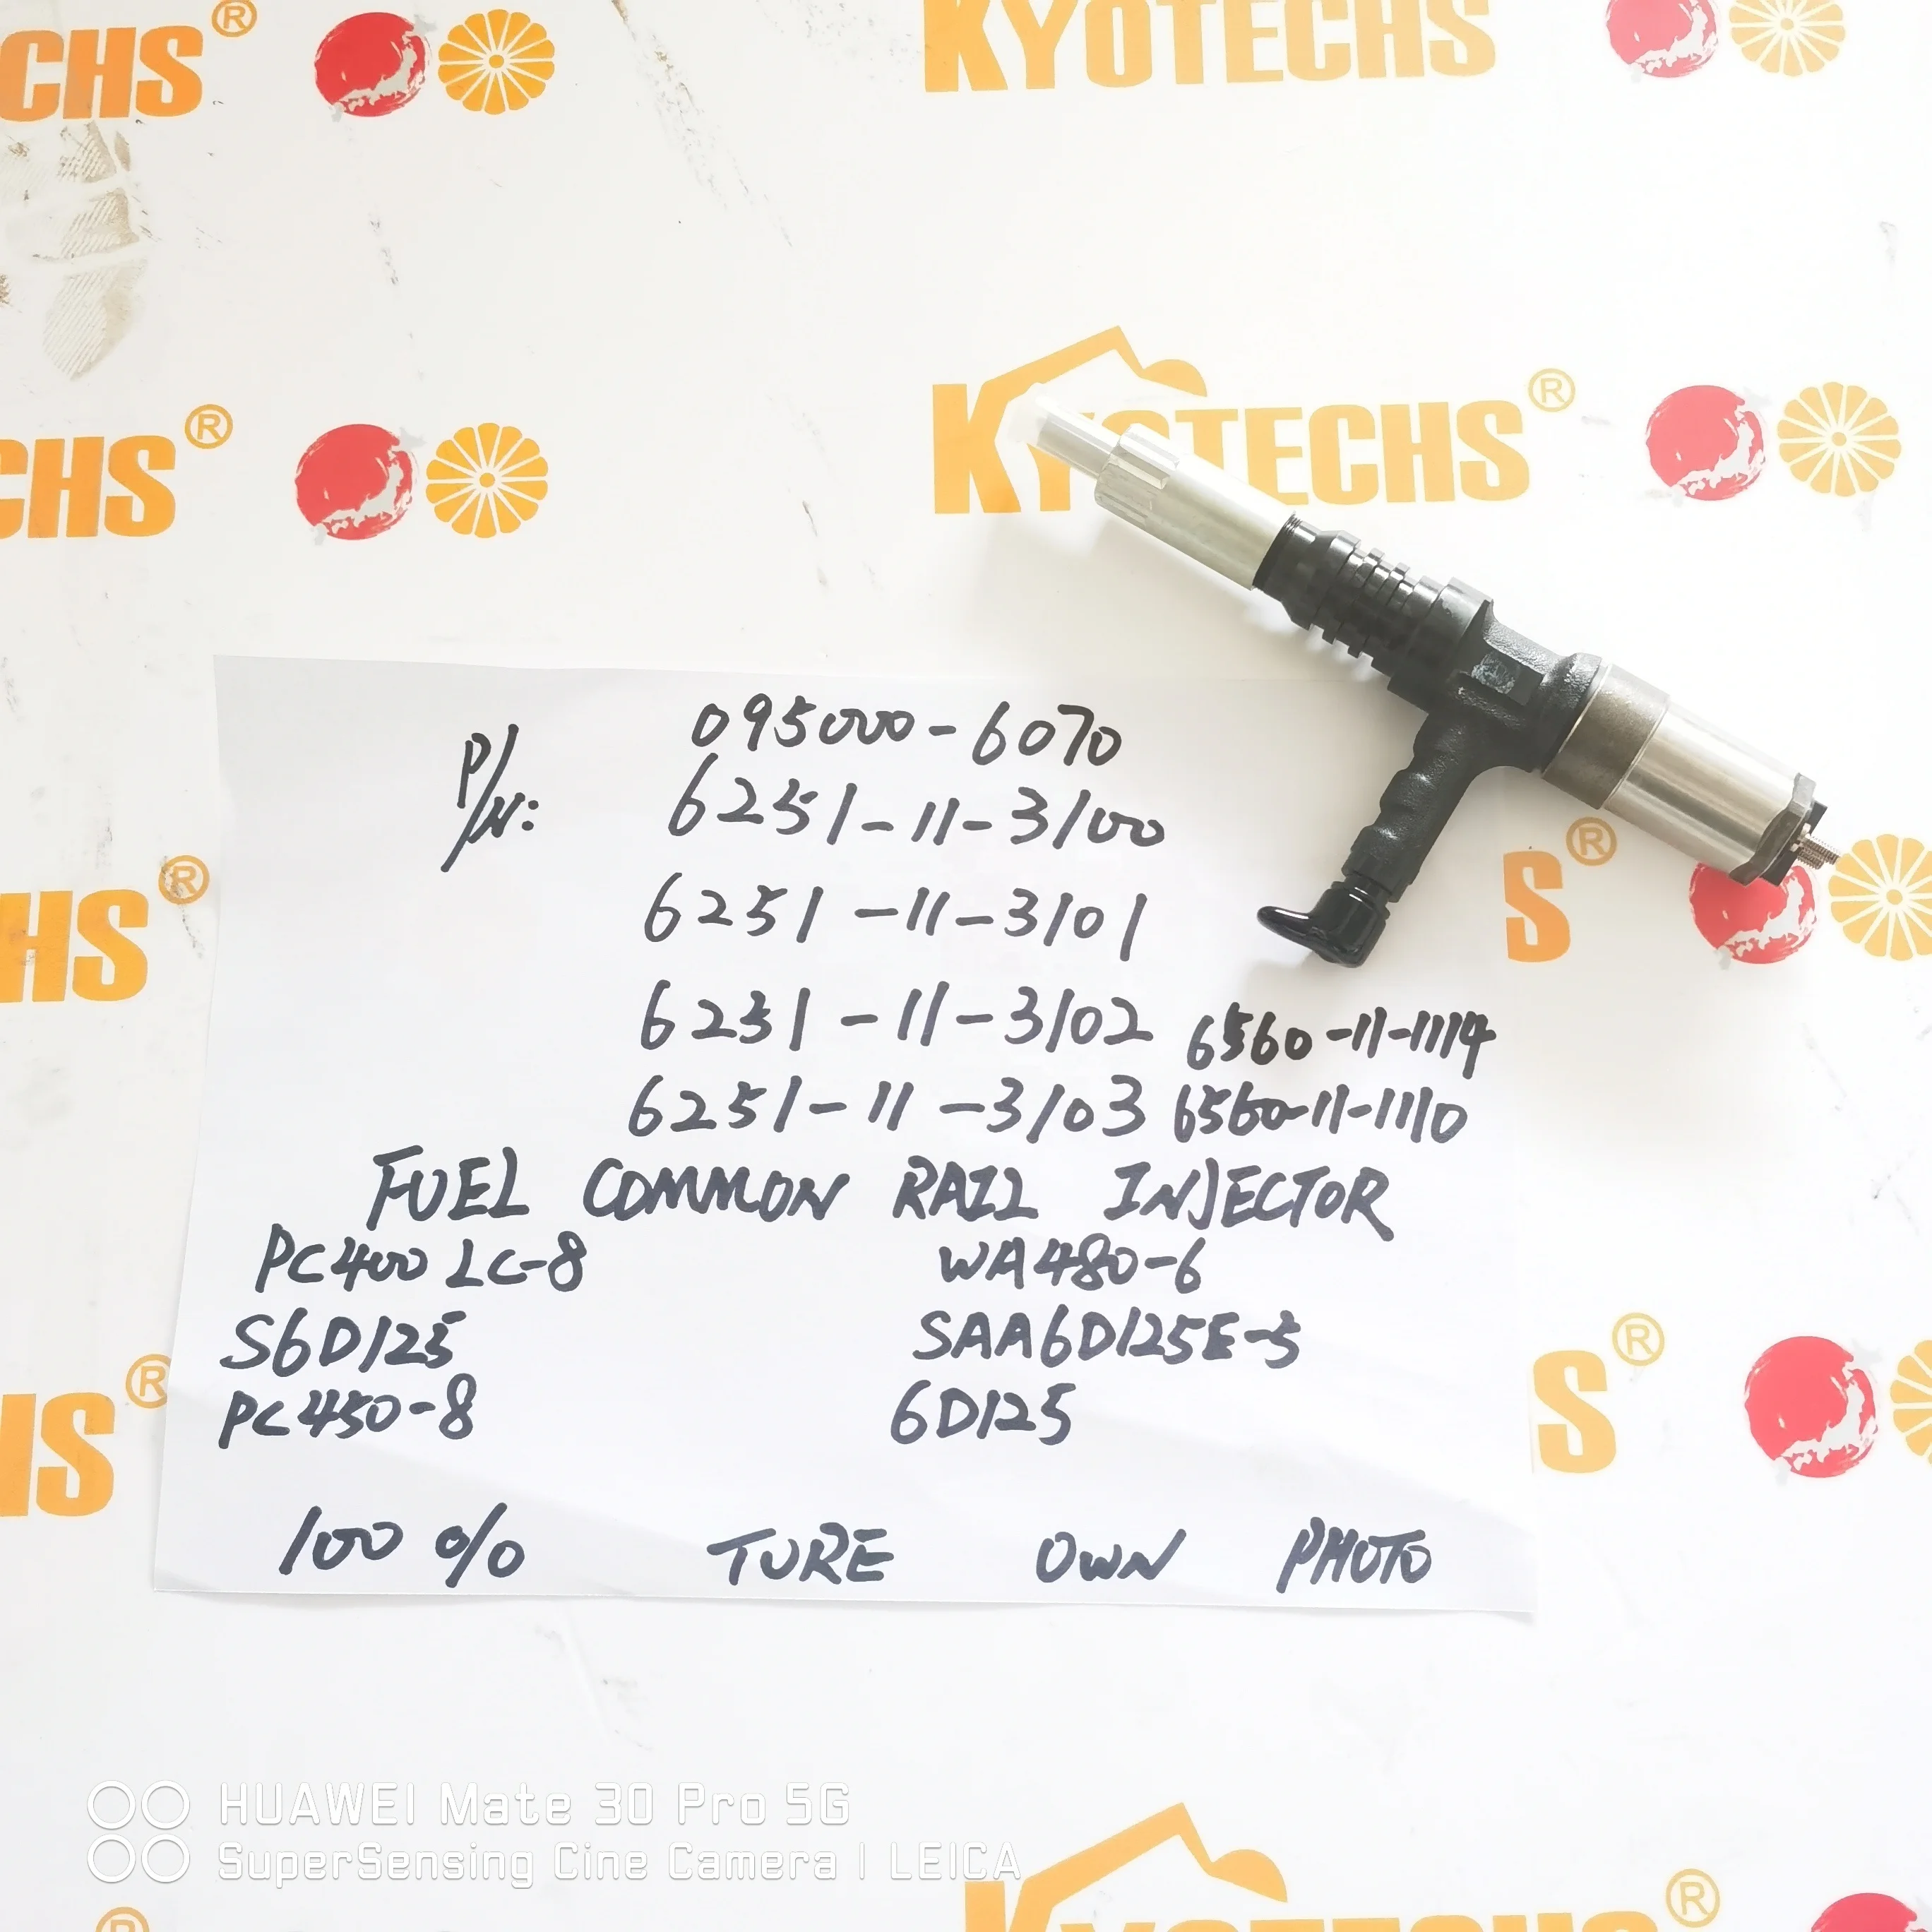 CHS®
KYOTECHS
KYOTECHS®
CHS®
P/N:
095000-6070
6251-11-3100
6251-11-3101
6231-11-3102 6560-11-1114
6251-11-3103 6560-11-1110
FUEL COMMON RAIL INJECTOR
PC400LC-8 WA480-6
S6D125 SAA6D125E-5
PC450-8 6D125
100% TURE OWN PHOTO
HS®
S®
HS®
S®
HUAWEI Mate 30 Pro 5G
SuperSensing Cine Camera | LEICA
KYOTECHS®
®